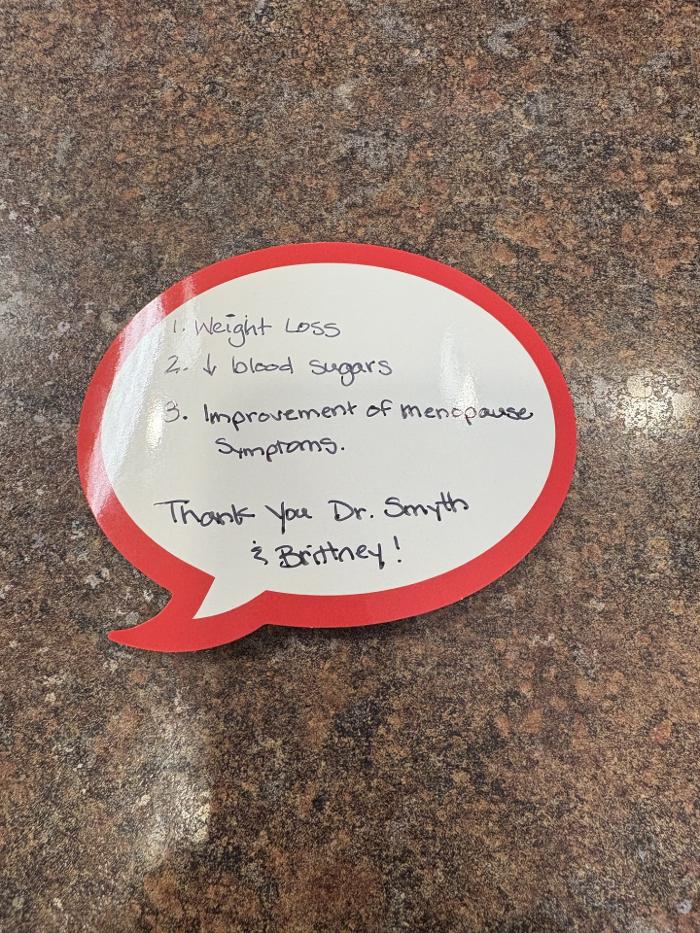 1. Weight Loss
2. ↓ blood sugars
3. Improvement of menopause
symptoms.
Thank you Dr. Smyth
& Brittney!